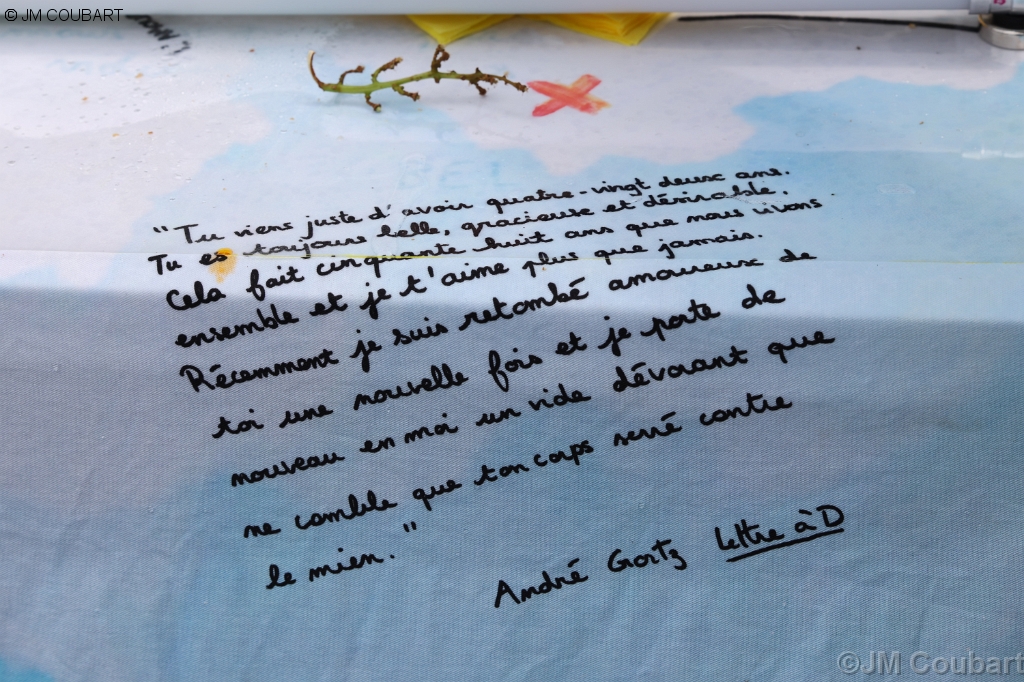 © JM COUBART
"Tu viens juste d'avoir quatre-vingt deux ans.
Tu es toujours belle, gracieuse et désirable.
Cela fait cinquante huit ans que nous vivons
ensemble et je t'aime plus que jamais.
Récemment je suis retombé amoureux de
toi une nouvelle fois et je porte de
nouveau en moi un vide dévorant que
ne comble que ton corps serré contre
le mien."
André Gortz Lettre à D
©JM Coubart